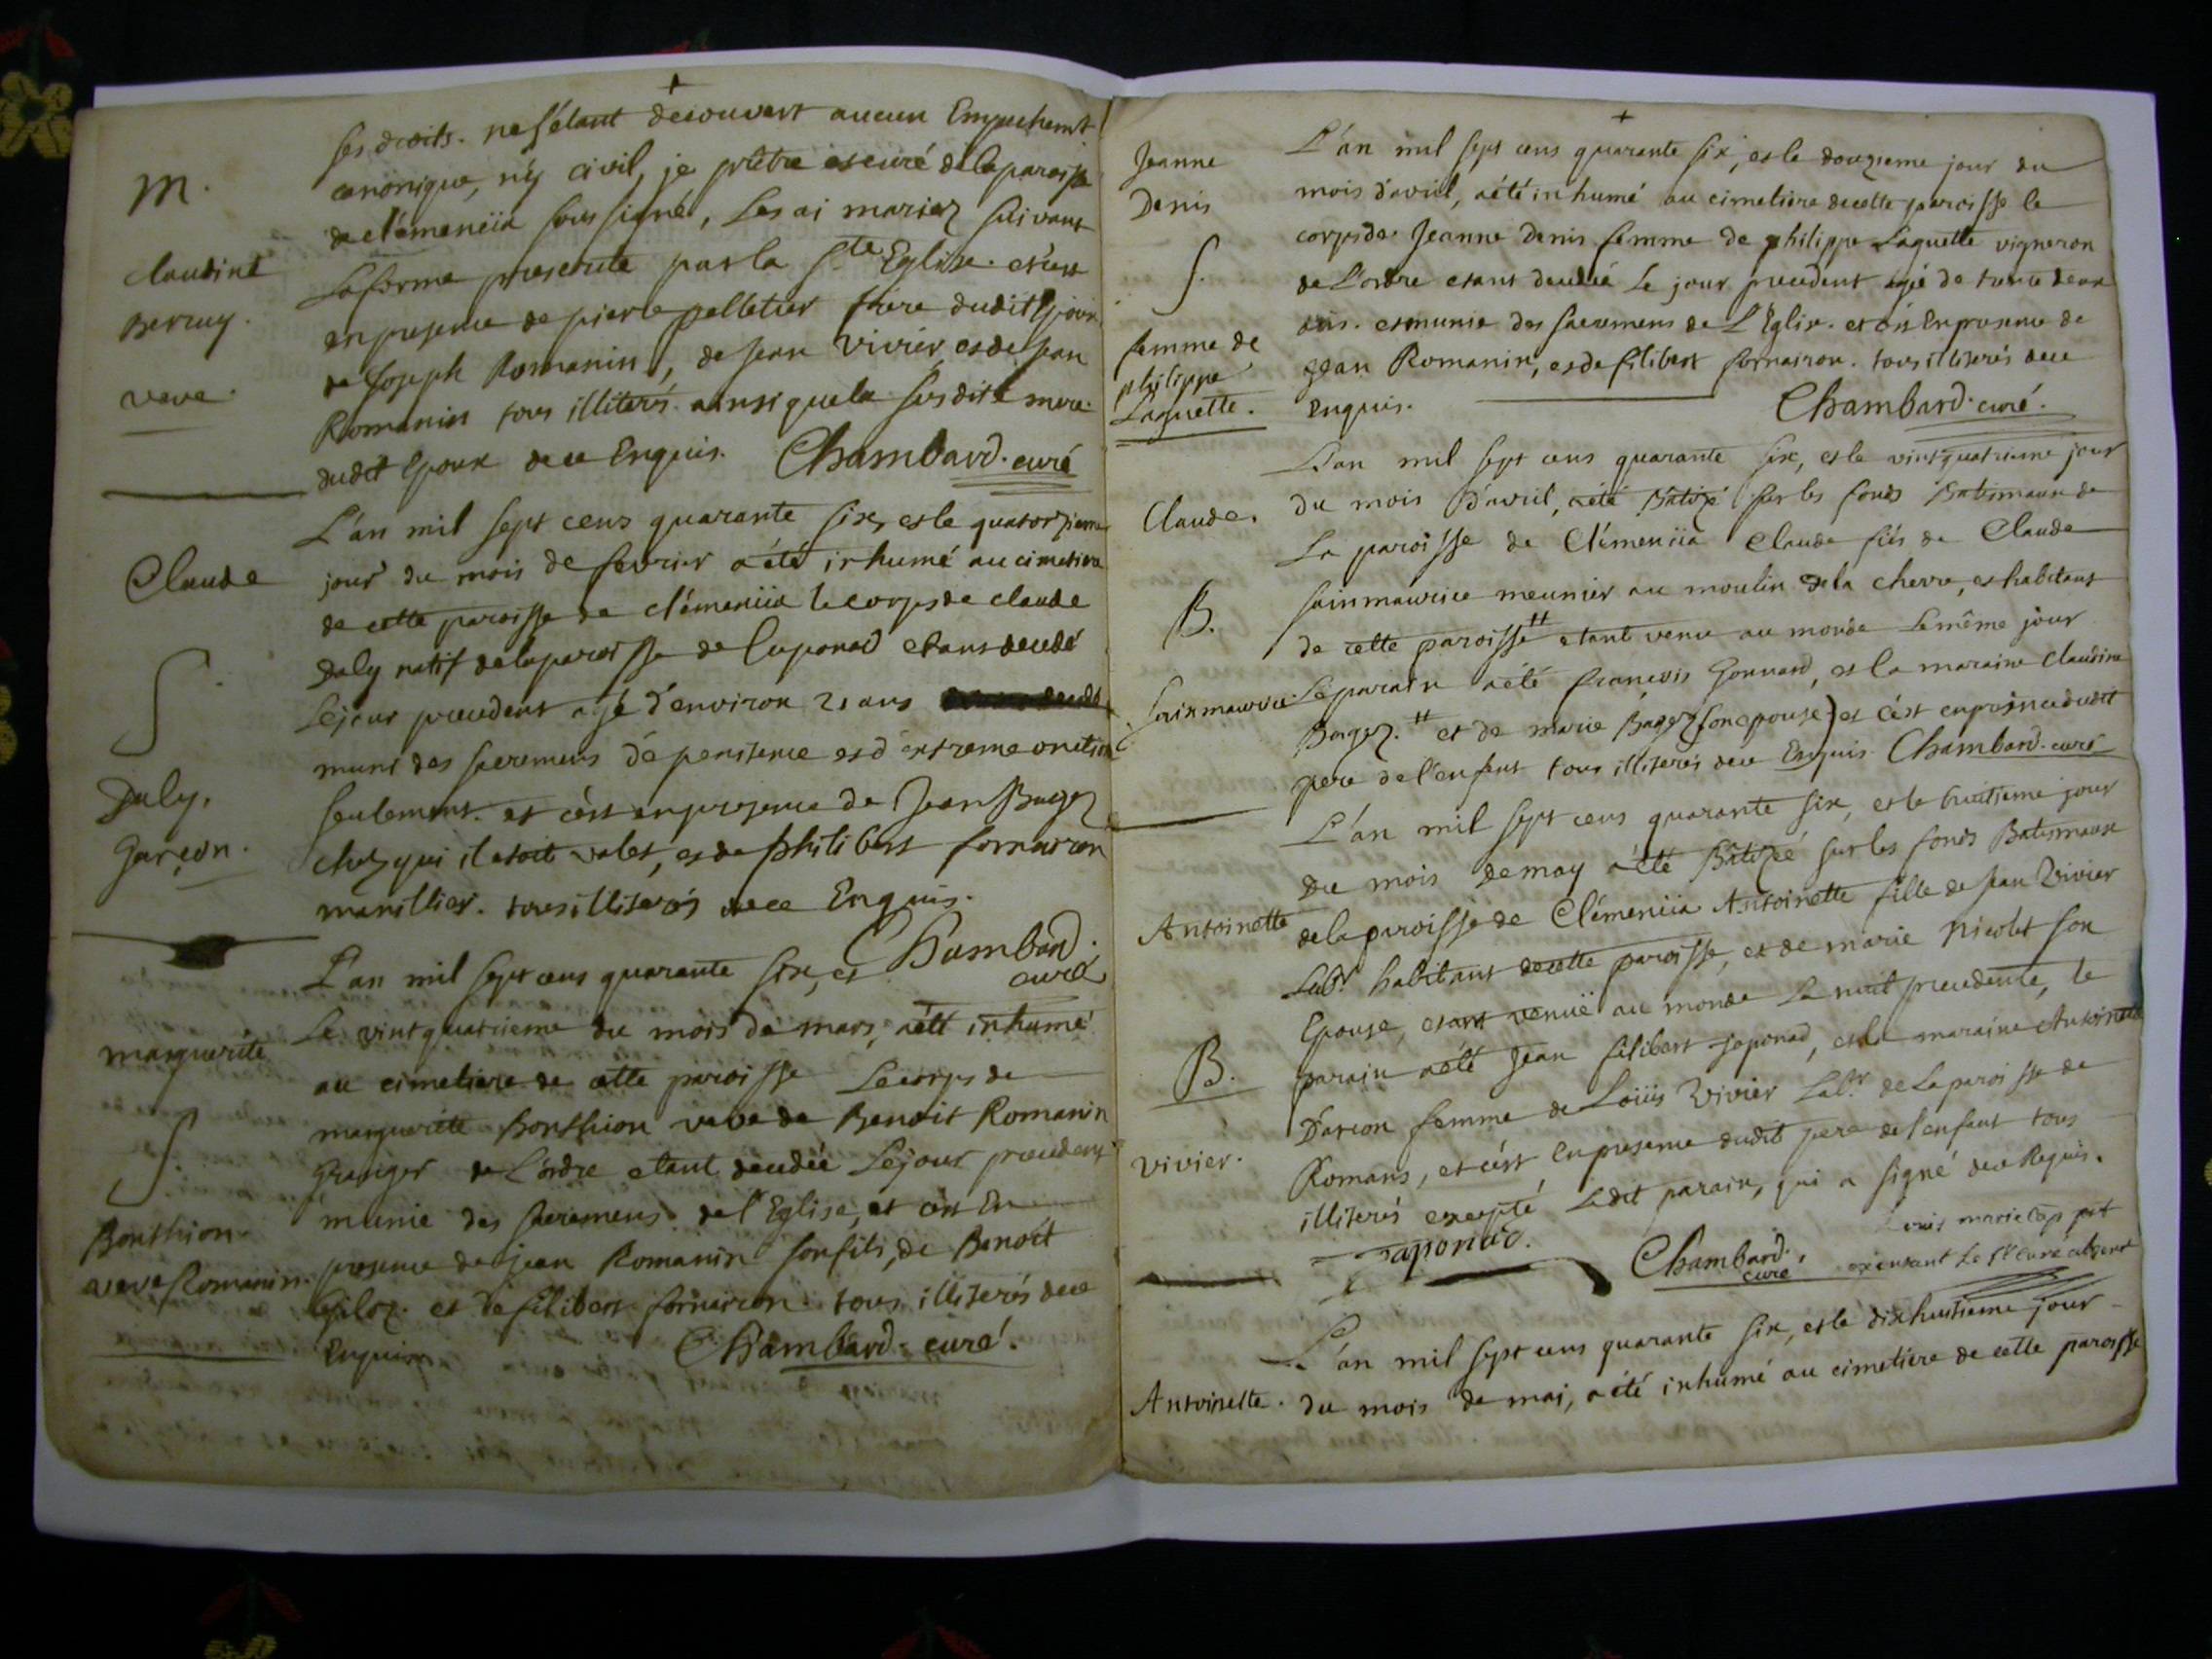 ses droits. ne s'étant decouvert aucun Empechemt
canonique, n'y civil, je prêtre et curé de la paroisse
de clémenciia soussigné, Les ai mariez suivant
La forme prescritte par la Ste Eglise. et c'est
en presence de pierre pelletier frere dudit Epoux
de Joseph Romanin, de jean vivier, et de jean
Romanin tous illiterés. ainsi que la susdite mere
dudit Epoux de ce Enquis. Chambard. curé
M.
claudine
Berruy.
veve.
L'an mil sept cens quarante six, et le quatorzieme
jour du mois de fevrier a été inhumé au cimetiere
de cette paroisse de clémenciia le corps de claude
Daly natif de la paroisse de luponad etant decedé
Le jour precedent agé d'environ 21 ans
muni des sacremens de penitence et d'extreme onction
seulement. et c'est en presence de Jean Bagez
chez qui il etoit valet, et de philibert fornairon
marillier. tous illiterés de ce Enquis.
Chambard.
curé
Claude
S.
Daly.
Garçon.
L'an mil sept cens quarante six, et
Le vint quatrieme du mois de mars, a été inhumé
au cimetiere de cette paroisse Le corps de
marguerite Bonthion veve de Benoit Romanin
Granger de L'ordre etant decedée Le jour precedent
munie des sacremens de l'Eglise, et c'est En
presence de jean Romanin son fils, de Benoit
et de filibert fornairon. tous illiterés de ce
Enquis. Chambard. curé.
marguerite
S.
Bonthion
veve Romanin.
L'an mil sept cens quarante six, et le douzieme jour du
mois d'avril, a été inhumé au cimetiere de cette paroisse le
corps de Jeanne Denis femme de philippe Laguette vigneron
de L'ordre etant decedée Le jour precedent agée de trente deux
ans. et munie des sacremens de L'Eglise. et c'est En presence de
Jean Romanin, et de filibert fornairon. tous illiterés de ce
Enquis. Chambard. curé.
Jeanne
Denis
S.
femme de
philippe
Laguette.
L'an mil sept cens quarante six, et le vint quatrieme jour
du mois d'avril, a été Batizé sur les fonds Batismaux de
La paroisse de Clémenciia Claude fils de Claude
sainmaurice meunier au moulin de la chevre, et habitant
de cette paroisse # etant venu au monde Le même jour
Le parain a été francois Gonnard, et la maraine claudine
Bagez. # et de marie Bagez (son epouse) et c'est en presence dudit
pere de l'enfant tous illiterés de ce Enquis. Chambard. curé
Claude.
B.
Sainmaurice
L'an mil sept cens quarante six, et le huitieme jour
du mois de may a été Batizée sur les fonds Batismaux
de la paroisse de Clémenciia Antoinette fille de Jean Vivier
Labr. habitant de cette paroisse, et de marie Nicolet son
Epouse, etant venüe au monde La nuit precedente, le
parain a été Jean filibert japonad, et la maraine Antoinette
D'arcon femme de Loüis Vivier Labr. de La paroisse de
Romans, et c'est En presence dudit pere de l'enfant tous
illiterés excepté Ledit parain, qui a signé de ce Requis.
Japonad. Chambard.
curé
Louis marie
Le Sr curé absent
Antoinette
B.
vivier.
L'an mil sept cens quarante six, et le dixhuitieme jour
du mois de mai, a été inhumé au cimetiere de cette paroisse
Antoinette.